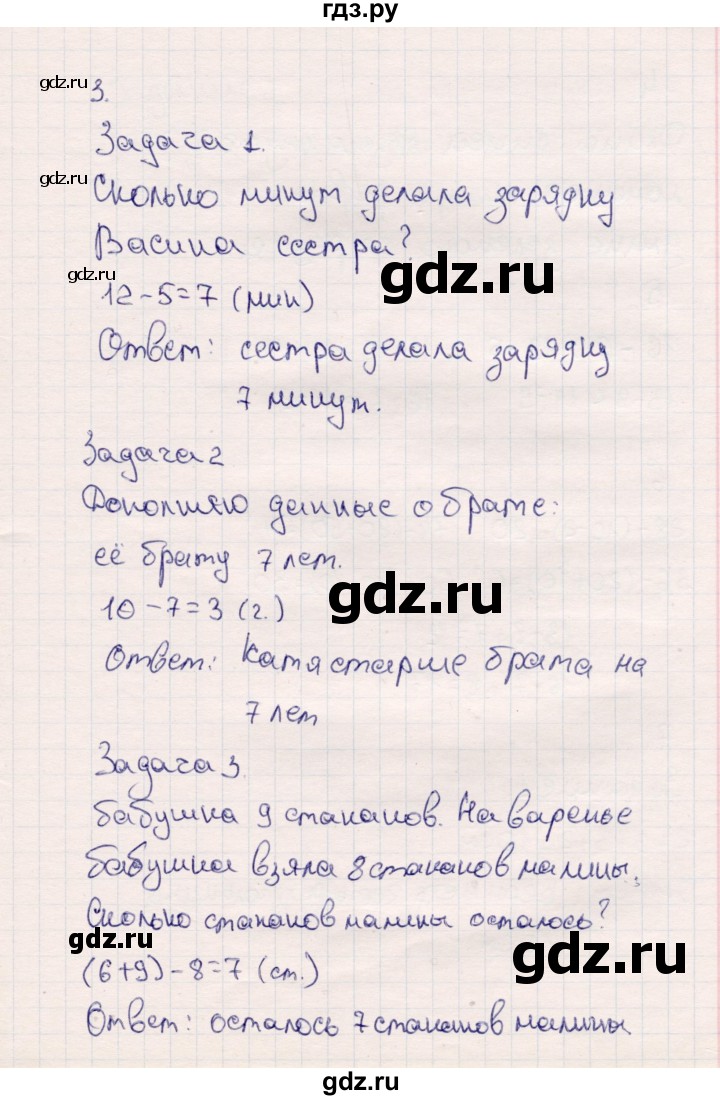 гдз.ру
gdz.ru
3.
Задача 1.
gdz.ru
Сколько минут делала зарядку
Васина сестра?
gdz.ru
12-5=7 (мин)
Ответ: сестра делала зарядку
7 минут.
Задача 2
Дополняю данные о брате:
её брату 7 лет.
gdz.ru
10-7=3 (г.)
Ответ: Катя старше брата на
7 лет
Задача 3.
бабушка 9 стаканов. На варенье
бабушка взяла 8 стаканов малины.
Сколько стаканов малины осталось?
gdz.ru
gdz.ru
(6+9)-8=7 (ст.)
Ответ: осталось 7 стаканов малины.
gdz.ru